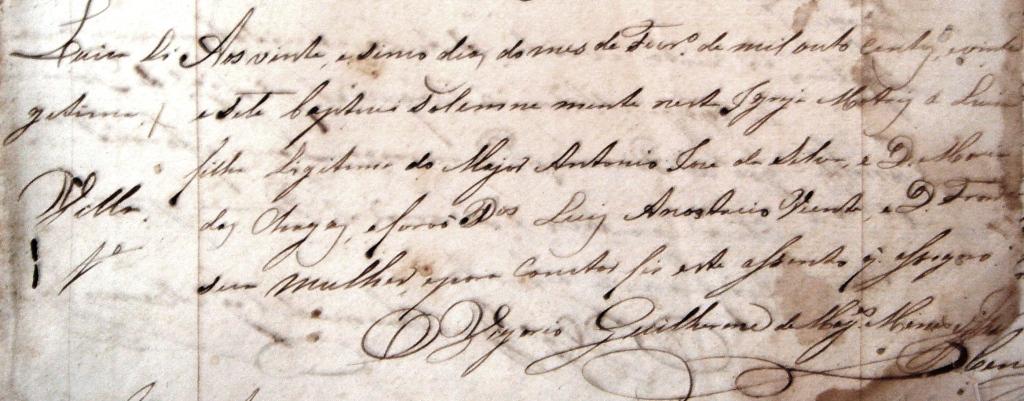 Luiza Li
gitima
Villa
Aos vinte, e sinco dias do mes de Fevrº. de mil outo centos, evinte
esete baptizei Solemne mente nesta Igreja Matriz a Luiza
filha Ligitima do Major Antonio Jose da Silva, e D. Maria
das Chagas, eforaõ Pdos Luiz Anastacio Vicente, e D. Fran
sua mulher, epara constar fis este assento q̃ assigno
O Vigrario Guilherme de Mags. Menezes